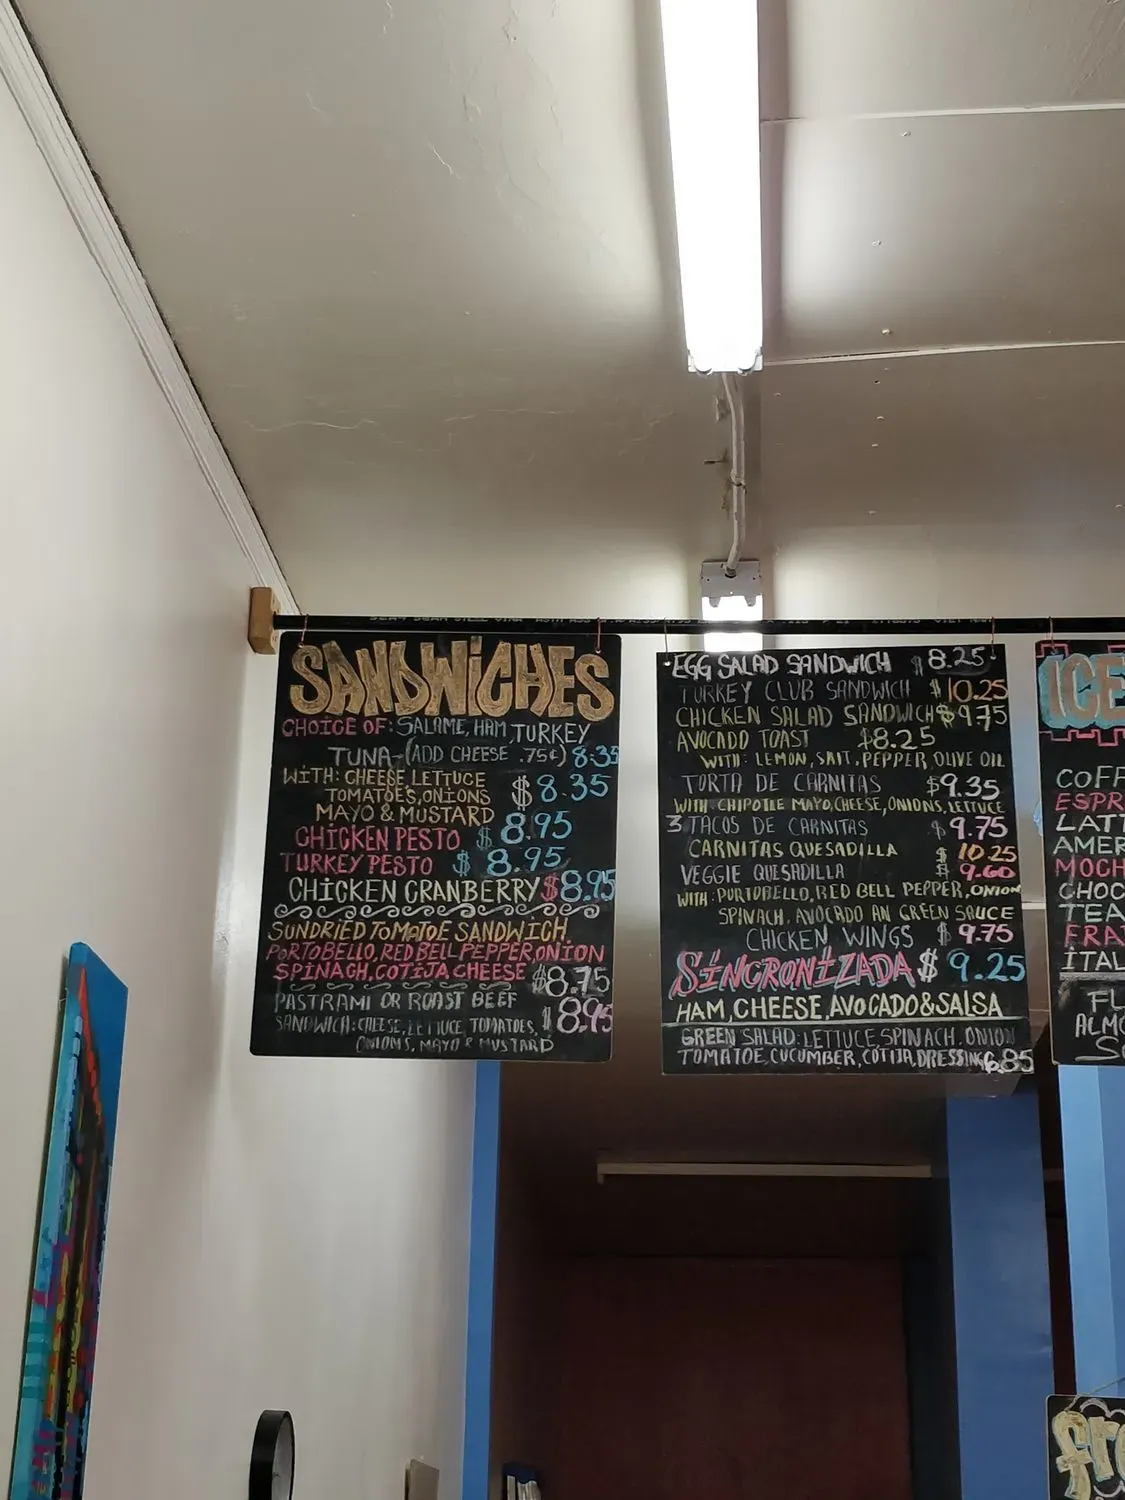 SANDWICHES
CHOICE OF: SALAME, HAM, TURKEY
TUNA-(ADD CHEESE .75¢) 8.35
WITH: CHEESE, LETTUCE
TOMATOES, ONIONS $8.35
MAYO & MUSTARD
CHICKEN PESTO $8.95
TURKEY PESTO $8.95
CHICKEN CRANBERRY $8.95
SUNDRIED TOMATOE SANDWICH
PORTOBELLO, RED BELL PEPPER, ONION
SPINACH, COTIJA CHEESE $8.75
PASTRAMI OR ROAST BEEF
SANDWICH: CHEESE, LETTUCE, TOMATOES, $8.95
ONIONS, MAYO & MUSTARD
EGG SALAD SANDWICH $8.25
TURKEY CLUB SANDWICH $10.25
CHICKEN SALAD SANDWICH $9.75
AVOCADO TOAST $8.25
WITH: LEMON, SALT, PEPPER, OLIVE OIL
TORTA DE CARNITAS $9.35
WITH CHIPOTLE MAYO, CHEESE, ONIONS, LETTUCE
3 TACOS DE CARNITAS $9.75
CARNITAS QUESADILLA $10.25
VEGGIE QUESADILLA $9.60
WITH: PORTOBELLO, RED BELL PEPPER, ONION
SPINACH, AVOCADO AN GREEN SAUCE
CHICKEN WINGS $9.75
SINCRONIZADA $9.25
HAM, CHEESE, AVOCADO & SALSA
GREEN SALAD: LETTUCE, SPINACH, ONION
TOMATOE, CUCUMBER, COTIJA, DRESSING 6.85
ICE
COFF
ESPR
LATT
AMER
MOCH
CHOC
TEA
FRA
ITAL
FL
ALMO
S
fr